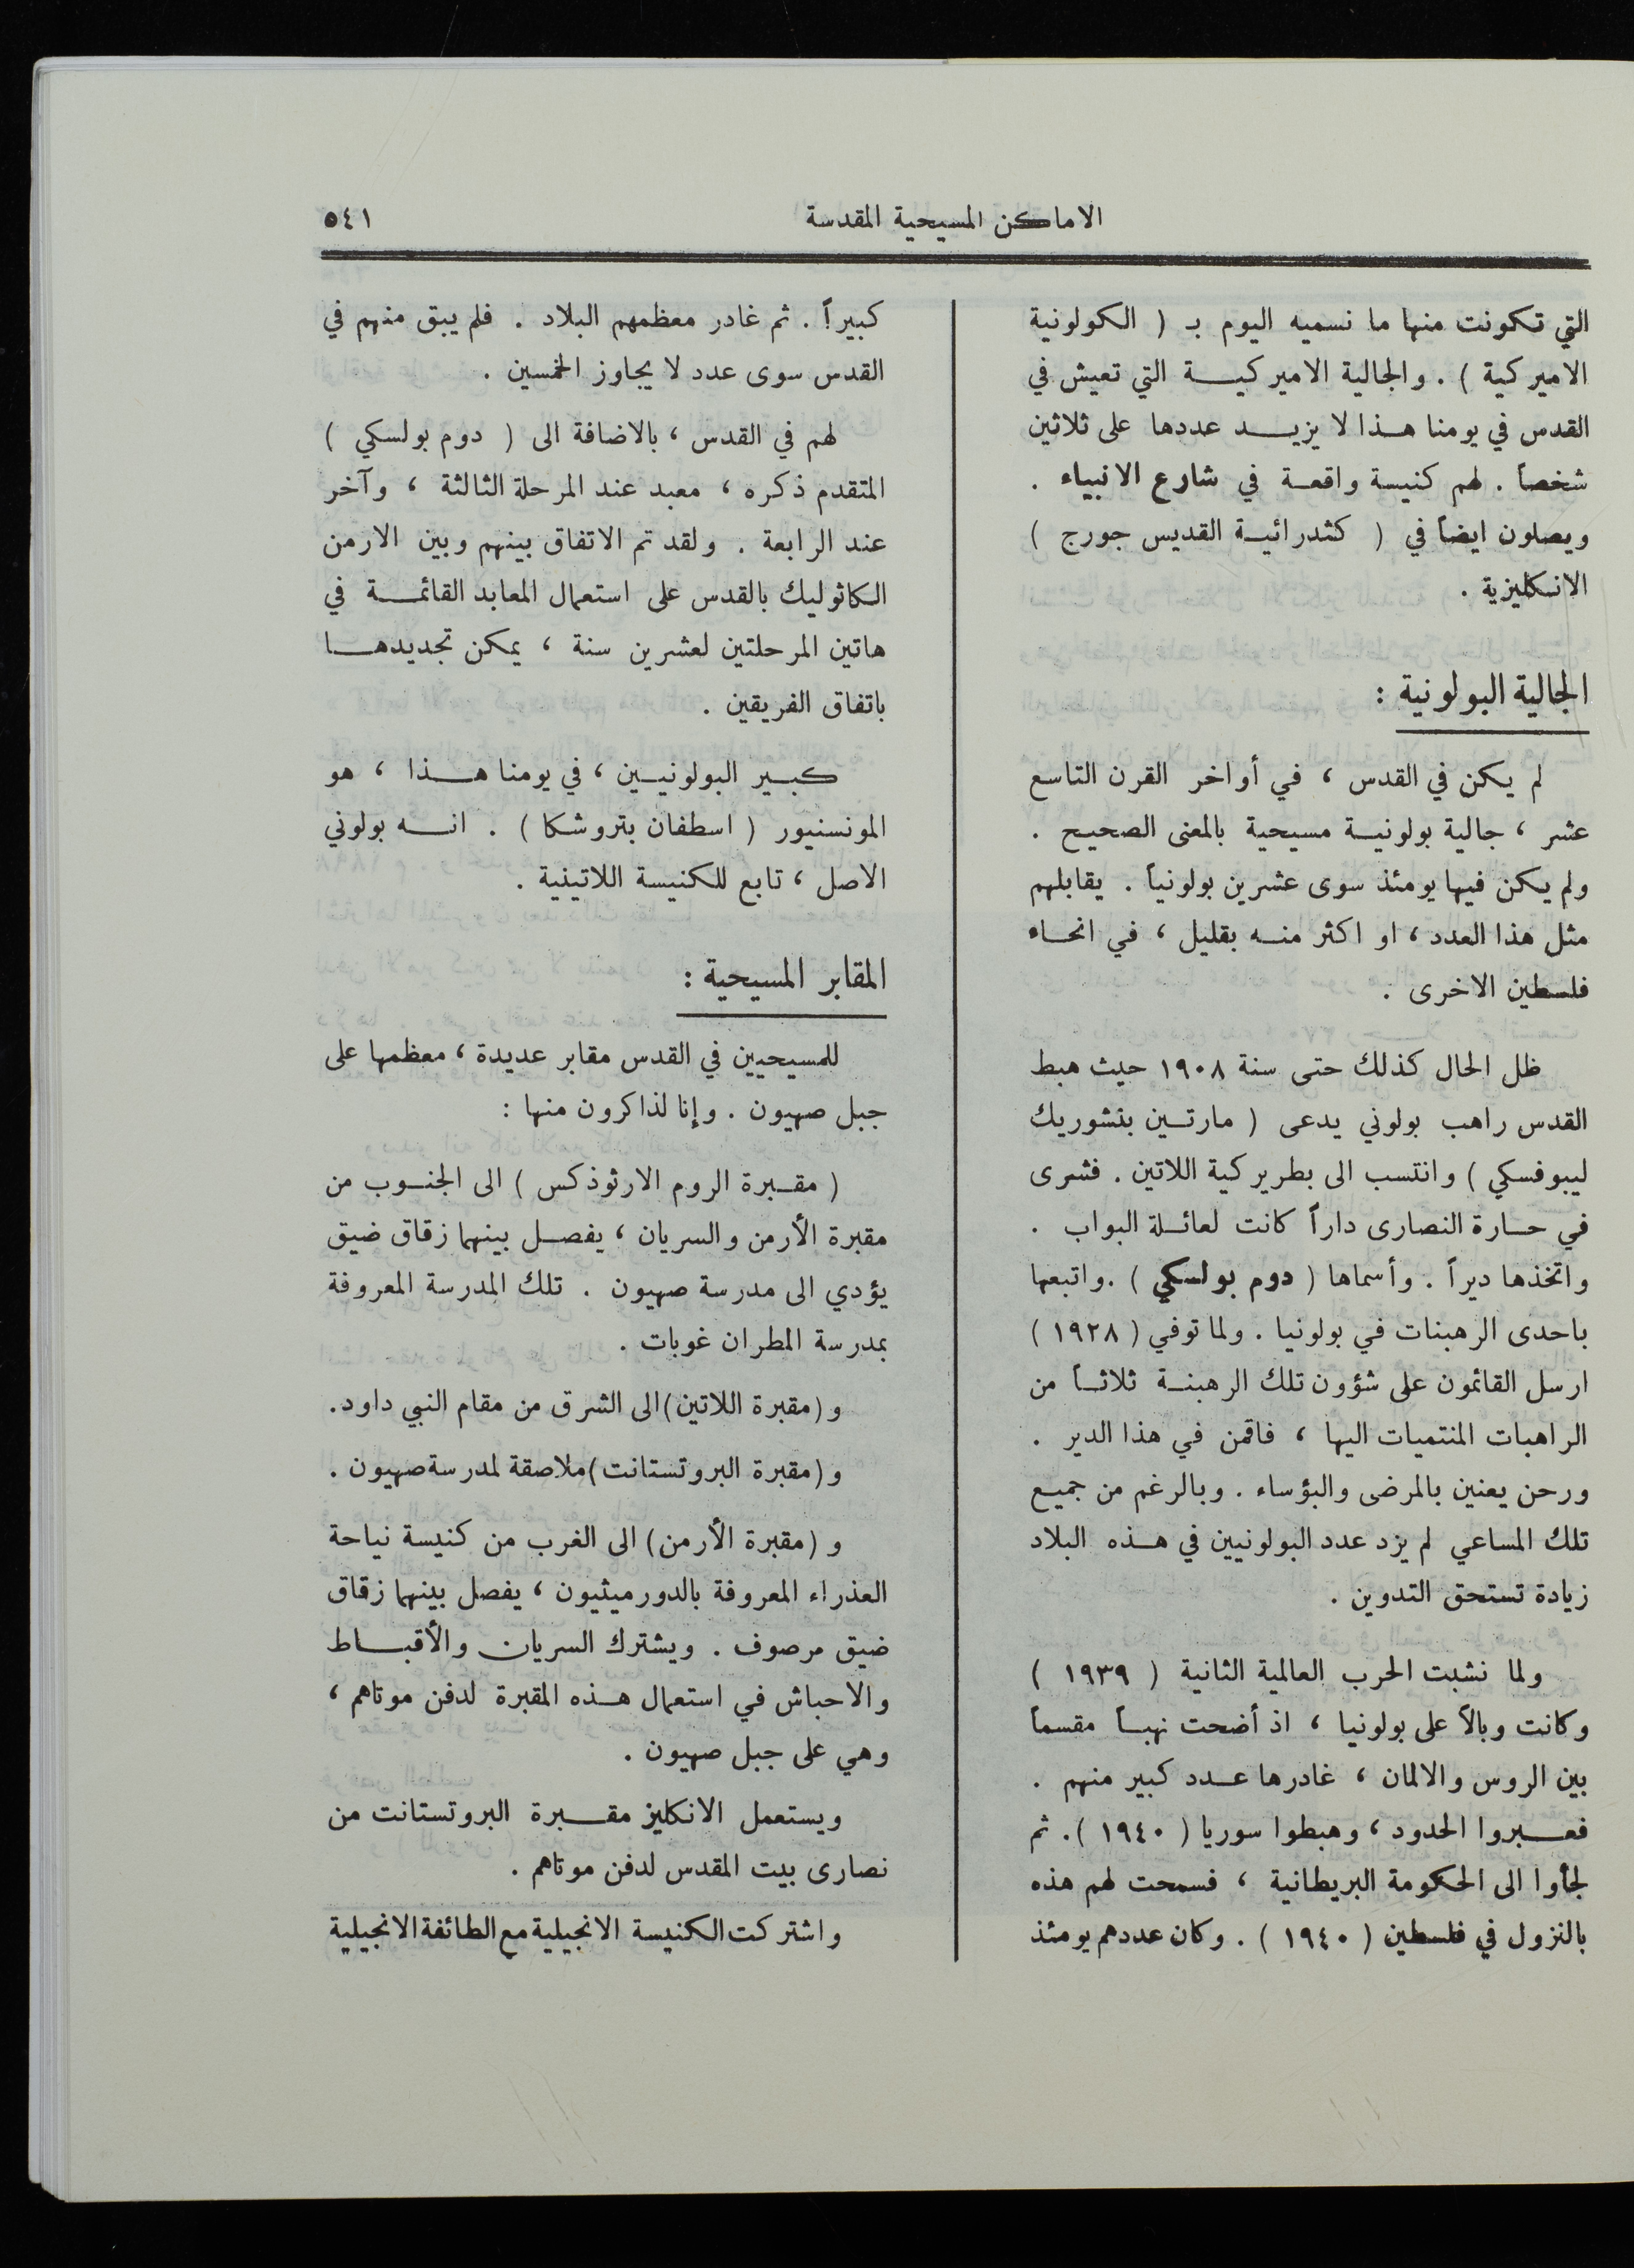 الاماكن المسيحية المقدسة
٥٤١
التي تكونت منها ما نسميه اليوم بـ ( الكولونية
الاميركية ) . والجالية الاميركية التي تعيش في
القدس في يومنا هذا لا يزيد عددها على ثلاثين
شخصاً . لهم كنيسة واقعة في شارع الانبياء .
ويصلون ايضاً في ( كثدرائية القديس جورج )
الانكليزية .
الجالية البولونية :
لم يكن في القدس ، في أواخر القرن التاسع
عشر ، جالية بولونية مسيحية بالمعنى الصحيح .
ولم يكن فيها يومئذ سوى عشرين بولونياً . يقابلهم
مثل هذا العدد ، او اكثر منه بقليل ، في انحاء
فلسطين الاخرى .
ظل الحال كذلك حتى سنة ١٩٠٨ حيث هبط
القدس راهب بولوني يدعى ( مارتين بنشوريك
ليبوفسكي ) وانتسب الى بطريركية اللاتين . فشرى
في حارة النصارى داراً كانت لعائلة البواب .
واتخذها ديراً . وأسماها ( دوم بولسكي ) . واتبعها
باحدى الرهبنات في بولونيا . ولما توفي ( ١٩٢٨ )
ارسل القائمون على شؤون تلك الرهبنة ثلاثاً من
الراهبات المنتميات اليها ، فاقمن في هذا الدير .
ورحن يعنين بالمرضى والبؤساء . وبالرغم من جميع
تلك المساعي لم يزد عدد البولونيين في هذه البلاد
زيادة تستحق التدوين .
ولما نشبت الحرب العالمية الثانية ( ١٩٣٩ )
وكانت وبالاً على بولونيا ، اذ أضحت نهباً مقسماً
بين الروس والالمان ، غادرها عدد كبير منهم .
فعبروا الحدود ، وهبطوا سوريا ( ١٩٤٠ ) . ثم
لجأوا الى الحكومة البريطانية ، فسمحت لهم هذه
بالنزول في فلسطين ( ١٩٤٠ ) . وكان عددهم يومئذ
كبيراً . ثم غادر معظمهم البلاد . فلم يبق منهم في
القدس سوى عدد لا يجاوز الخمسين .
لهم في القدس ، بالاضافة الى ( دوم بولسكي )
المتقدم ذكره ، معبد عند المرحلة الثالثة ، وآخر
عند الرابعة . ولقد تم الاتفاق بينهم وبين الارمن
الكاثوليك بالقدس على استعمال المعابد القائمة في
هاتين المرحلتين لعشرين سنة ، يمكن تجديدها
باتفاق الفريقين .
كبير البولونيين ، في يومنا هذا ، هو
المونسنيور ( اسطفان بتروشكا ) . انه بولوني
الاصل ، تابع للكنيسة اللاتينية .
المقابر المسيحية :
للمسيحيين في القدس مقابر عديدة ، معظمها على
جبل صهيون . وإنا لذاكرون منها :
( مقبرة الروم الارثوذكس ) الى الجنوب من
مقبرة الأرمن والسريان ، يفصل بينهما زقاق ضيق
يؤدي الى مدرسة صهيون . تلك المدرسة المعروفة
بمدرسة المطران غوبات .
و (مقبرة اللاتين) الى الشرق من مقام النبي داود .
و (مقبرة البروتستانت) ملاصقة لمدرسة صهيون .
و (مقبرة الأرمن) الى الغرب من كنيسة نياحة
العذراء المعروفة بالدورميثيون ، يفصل بينهما زقاق
ضيق مرصوف . ويشترك السريان والأقباط
والاحباش في استعمال هذه المقبرة لدفن موتاهم ،
وهي على جبل صهيون .
ويستعمل الانكليز مقبرة البروتستانت من
نصارى بيت المقدس لدفن موتاهم .
واشتركت الكنيسة الانجيلية مع الطائفة الانجيلية